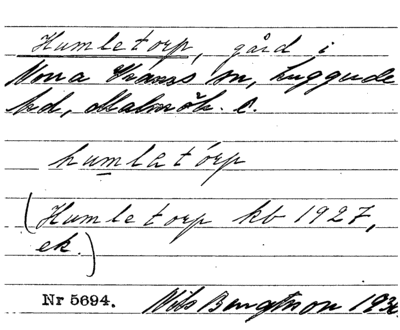 Humletorp, gård i
Norra Vrams sn, Luggude
hd, Malmöh. l.
humlatórp
(Humletorp kb 1927,
ek.)
Nr 5694. Nils Bengtsson 193